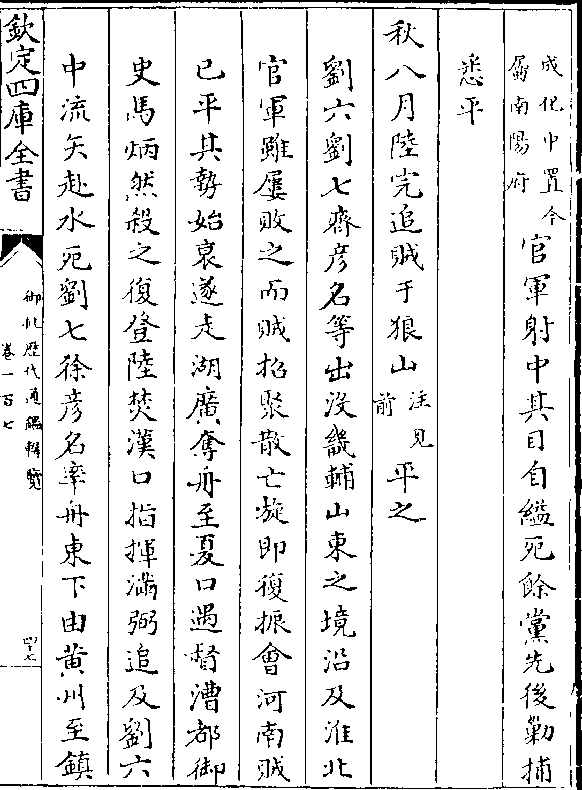 成化中置今
屬南陽府
官軍射中其目自縊死餘黨先後勦捕
悉平
秋八月陸完追賊于狼山
注見
前
平之
劉六劉七齊彦名等出没畿輔山東之境沿及淮北
官軍雖屢敗之而賊招聚散亡旋即復振會河南賊
已平其勢始衰遂走湖廣奪舟至夏口遇督漕都御
史馬炳然殺之復登陸焚漢口指揮滿弼追及劉六
中流矢赴水死劉七徐彦名率舟東下由黄州至鎮
欽定四庫全書
御批歷代通鑑輯覽
卷一百七
四十七